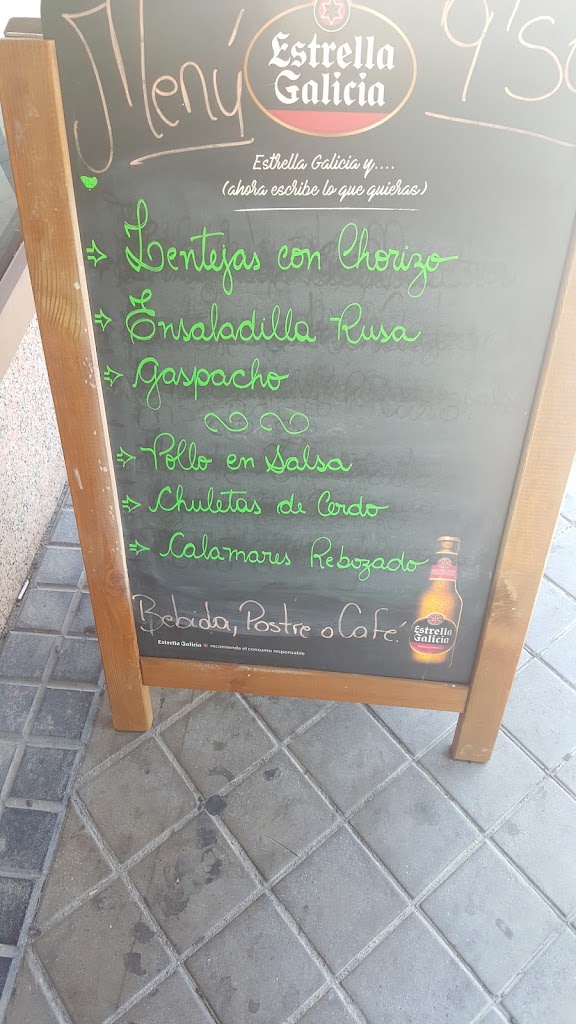 Menú
9'50
Estrella
Galicia
Estrella Galicia y....
(ahora escribe lo que quieras)
Lentejas con Chorizo
Ensaladilla Rusa
Gaspacho
Pollo en Salsa
Chuletas de Cerdo
Calamares Rebozado
Bebida, Postre o Café.
Estrella
Galicia
Estrella Galicia recomienda el consumo responsable